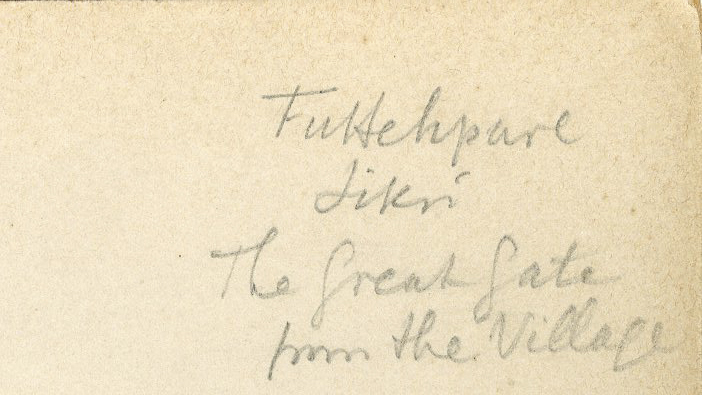 Futtehpure
Sikri
The Great Gate
from the Village